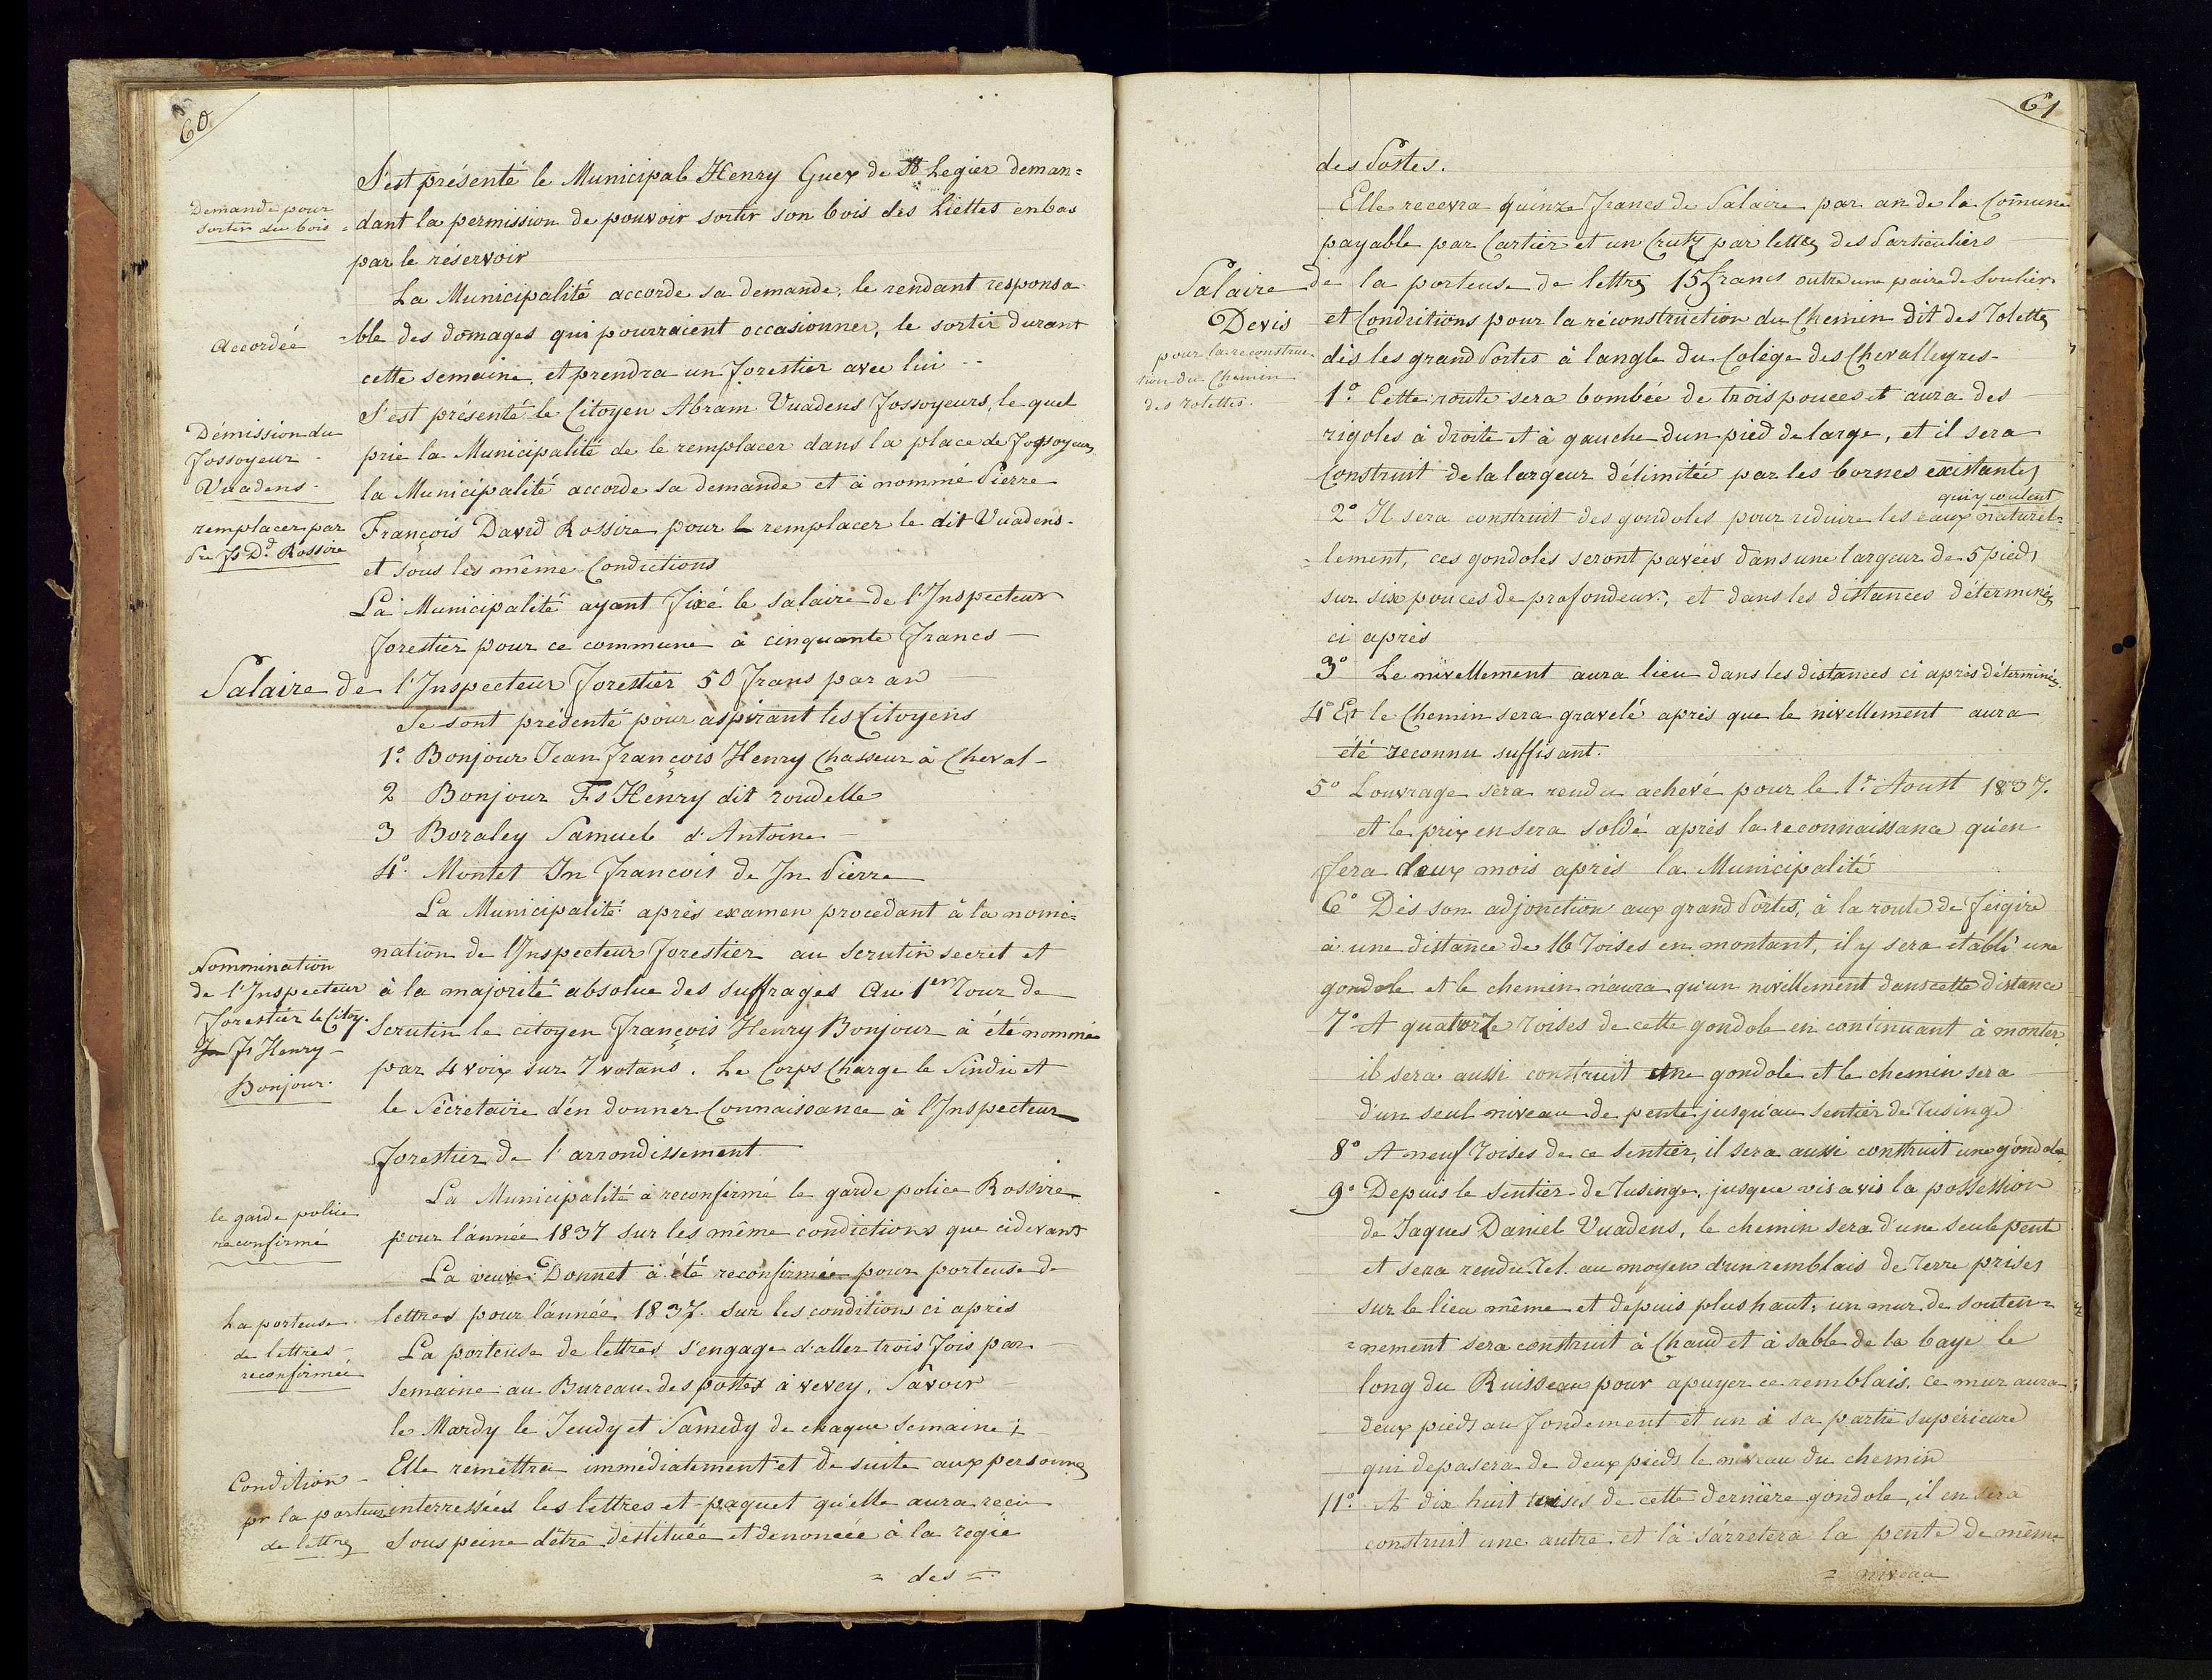 60
S'est présenté le Municipal Henry Guex de St Legier deman=
Demande pour
sortir du bois
=dant la permission de pouvoir sortir son bois des Liettes enbas
par le réservoir
La Municipalité accorde sa demande, le rendant responsa
Accordée
=ble des domages qui pourraient occasionner, le sortir durant
cette semaine, et prendra un forestier avec lui
S'est présenté le Citoyen Abram Vuadens fossoyeurs, le quel
Démission du
fossoyeur
Vuadens
prie la Municipalité de le remplacer dans la place de fossoyeurs
la Municipalité accorde sa demande et à nommé Pierre
remplacer par
Pre fs Dd Rossire
François David Rossire pour le remplacer le dit Vuadens.
et sous les même Condictions
La Municipalité ayant fixé le salaire de l'Inspecteur
forestier pour ce commune à cinquante francs
Salaire de l'Inspecteur forestier 50 frans par an
Se sont présenté pour aspirant les Citoyens
1º Bonjour Jean françois Henry Chasseur à Cheval
2 Bonjour Fs Henry dit roudelle
3 Boraley Samuel d'Antoine
4º Montet Jn francois de Jn Pierre
La Municipalité après examen procedant à la nomi=
nation de l'Inspecteur forestier au scrutin secret et
Nommination
de l'Inspecteur
forestier le Citoy.
Jn fs Henry
Bonjour.
à la majorité absolue des suffrages Au 1er Tour de
Scrutin le citoyen françois Henry Bonjour à été nommé
par 4 voix sur 7 votans. Le Corps Charge le Sindic et
le Sécretaire d'en donner Connaissance à l'Inspecteur
forestier de l'arrondissement
La Municipalité à reconfirmé le garde police Rossire
le garde police
reconfirmé
pour l'année 1837 sur les même condictions que cidevant
La veuve Donnet à été reconfirmée pour porteuse de
La porteuse
de lettres
reconfirmée
lettres pour l'année 1837. sur les conditions ci après
La porteuse de lettres s'engage d'aller trois fois par
semaine au Bureau des postes à vevey, Savoir
le Mardy le Jeudy et Samedy de chaque semaine;
Elle remettra immédiatement et de suite aux personnes
Condition
pr la porteuse
de lettres
interressées les lettres et paquet qu'elle aura recu
Sous peine d'être destituée et denoncée à la regie
= des =
61
des Postes.
Elle recevra quinze francs de Salaire par an de la Comune
payable par Cartier et un Crutz par lettres des Particuliers
Salaire de la porteuse de lettres 15 francs outre une paire de Soulier
Devis
pour la reconstruc-
tion du Chemin
des Tolettes.
et Conditions pour la réconstruction du Chemin dit des Tolettes
dès les grand Portes à langle du Colège des Chevalleyres.
1º Cette route sera bombée de trois pouces et aura des
rigoles à droite et à gauche dun pied de large, et il sera
Construit de la largeur délimitée par les bornes existantes
qui y coulent
2º Il sera construit des gondoles pour reduire les eaux naturel=
=lement, ces gondoles seront pavées dans une largeur de 5 pieds
sur six pouces de profondeur, et dans les distances déterminés
ci après
3º Le nivellement aura lieu dans les distances ci après déterminés.
4º Et le Chemin sera gravelé après que le nivellement aura
été reconnu suffisant.
5º L'ouvrage sera rendu achevé pour le 1r Aoust 1837.
et le prix en sera soldé après la reconnaissance qu'en
fera deux mois après la Municipalité
6º Dès son adjonction aux grand Portes, à la route de Feigire
à une distance de 16 Toises en montant, il y sera établi une
gondole et le chemin n'aura qu'un nivellement dans cette distance
7º A quatorze Toises de cette gondole en continuant à monter
il sera aussi construit une gondole et le chemin sera
d'un seul niveau de pente jusqu'au sentier de Tusinge
8º A neuf Toises de ce Sentier, il sera aussi construit une gondole
9º Depuis le Sentier de Tusinge, jusque vis a vis la possession
de Jaques Daniel Vuadens, le chemin sera d'une seule pente
et sera rendu Tel au moyen d'un remblais de Terre prises
sur le lieu même et depuis plus haut; un mur de souten=
=nement sera construit à Chaud et à sable de la baye le
long du Ruisseau pour apuyer ce remblais, ce mur aura
deux pieds au fondement et un à sa partie supérieure
qui depasera de deux pieds le niveau du chemin
11º A dix huit toises de cette dernière gondole, il en sera
construit une autre et là s'arretera la pente de même
= niveau